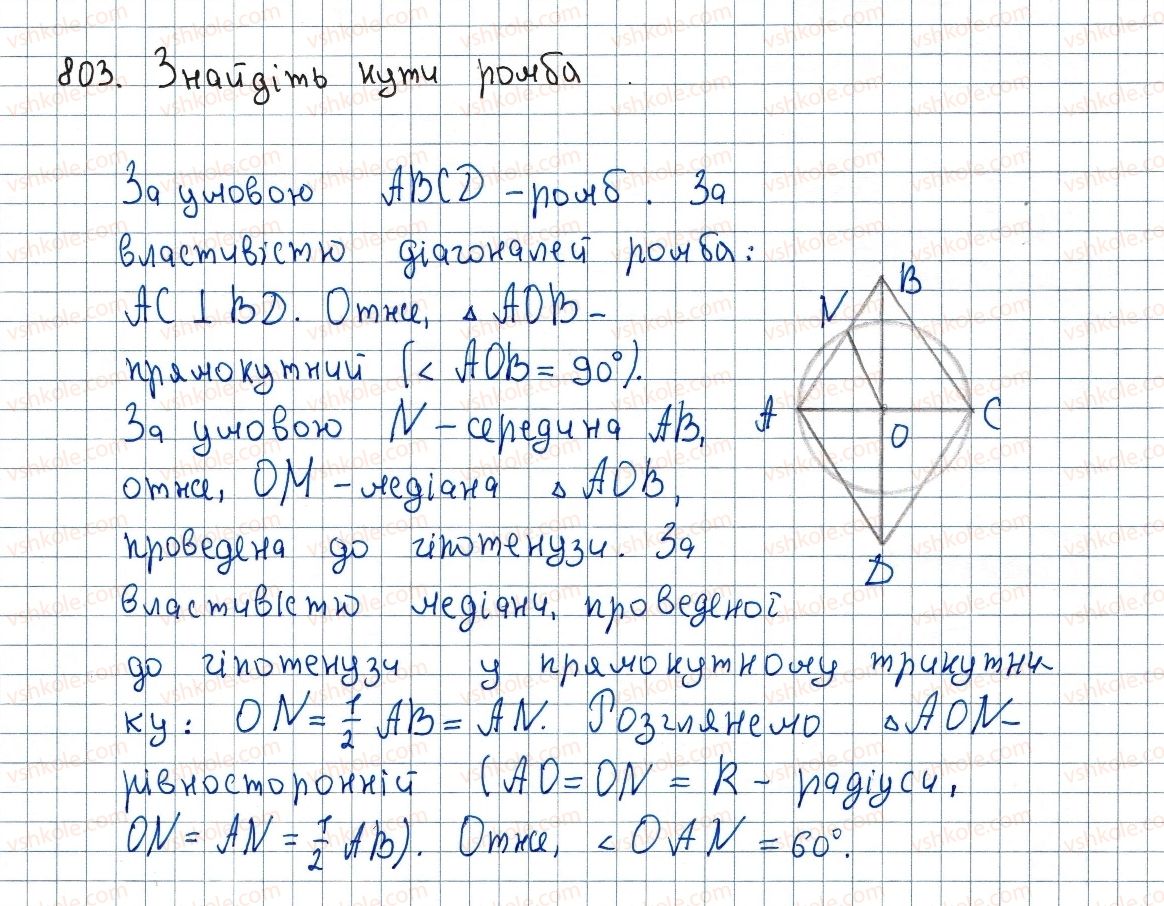 803. Знайдіть кути ромба .
За умовою ABCD - ромб . За
властивістю діагоналей ромба:
AC ⊥ BD. Отже, △ AOB -
прямокутний (< AOB = 90°).
За умовою N - середина AB,
отже, OM - медіана △ AOB,
проведена до гіпотенузи. За
властивістю медіани, проведеної
до гіпотенузи у прямокутному трикутни-
ку: ON = 1/2 AB = AN. Розглянемо △ AON -
рівносторонній (AO = ON = R - радіуси,
ON = AN = 1/2 AB). Отже, < OAN = 60°.
B
N
A
C
O
D